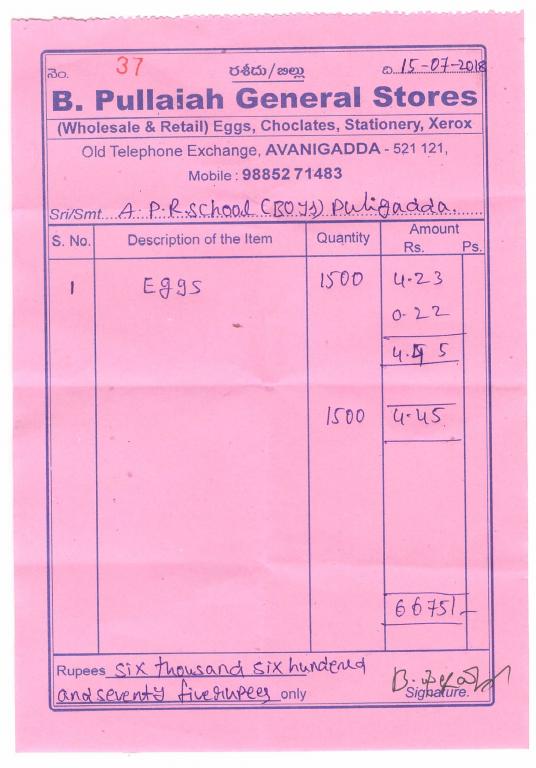 నెం. 37 రశీదు/బిల్లు ది. 15-07-2018
B. Pullaiah General Stores
(Wholesale & Retail) Eggs, Choclates, Stationery, Xerox
Old Telephone Exchange, AVANIGADDA - 521 121,
Mobile : 98852 71483
Sri/Smt. A. P. R. School (BOYS) Puligadda.
S. No. Description of the Item Quantity Amount
Rs. Ps.
1 Eggs 1500 4.23
0.22
4.45
1500 4.45
6675/-
Rupees six thousand six hundered
and seventy five rupees only
B.
Signature.